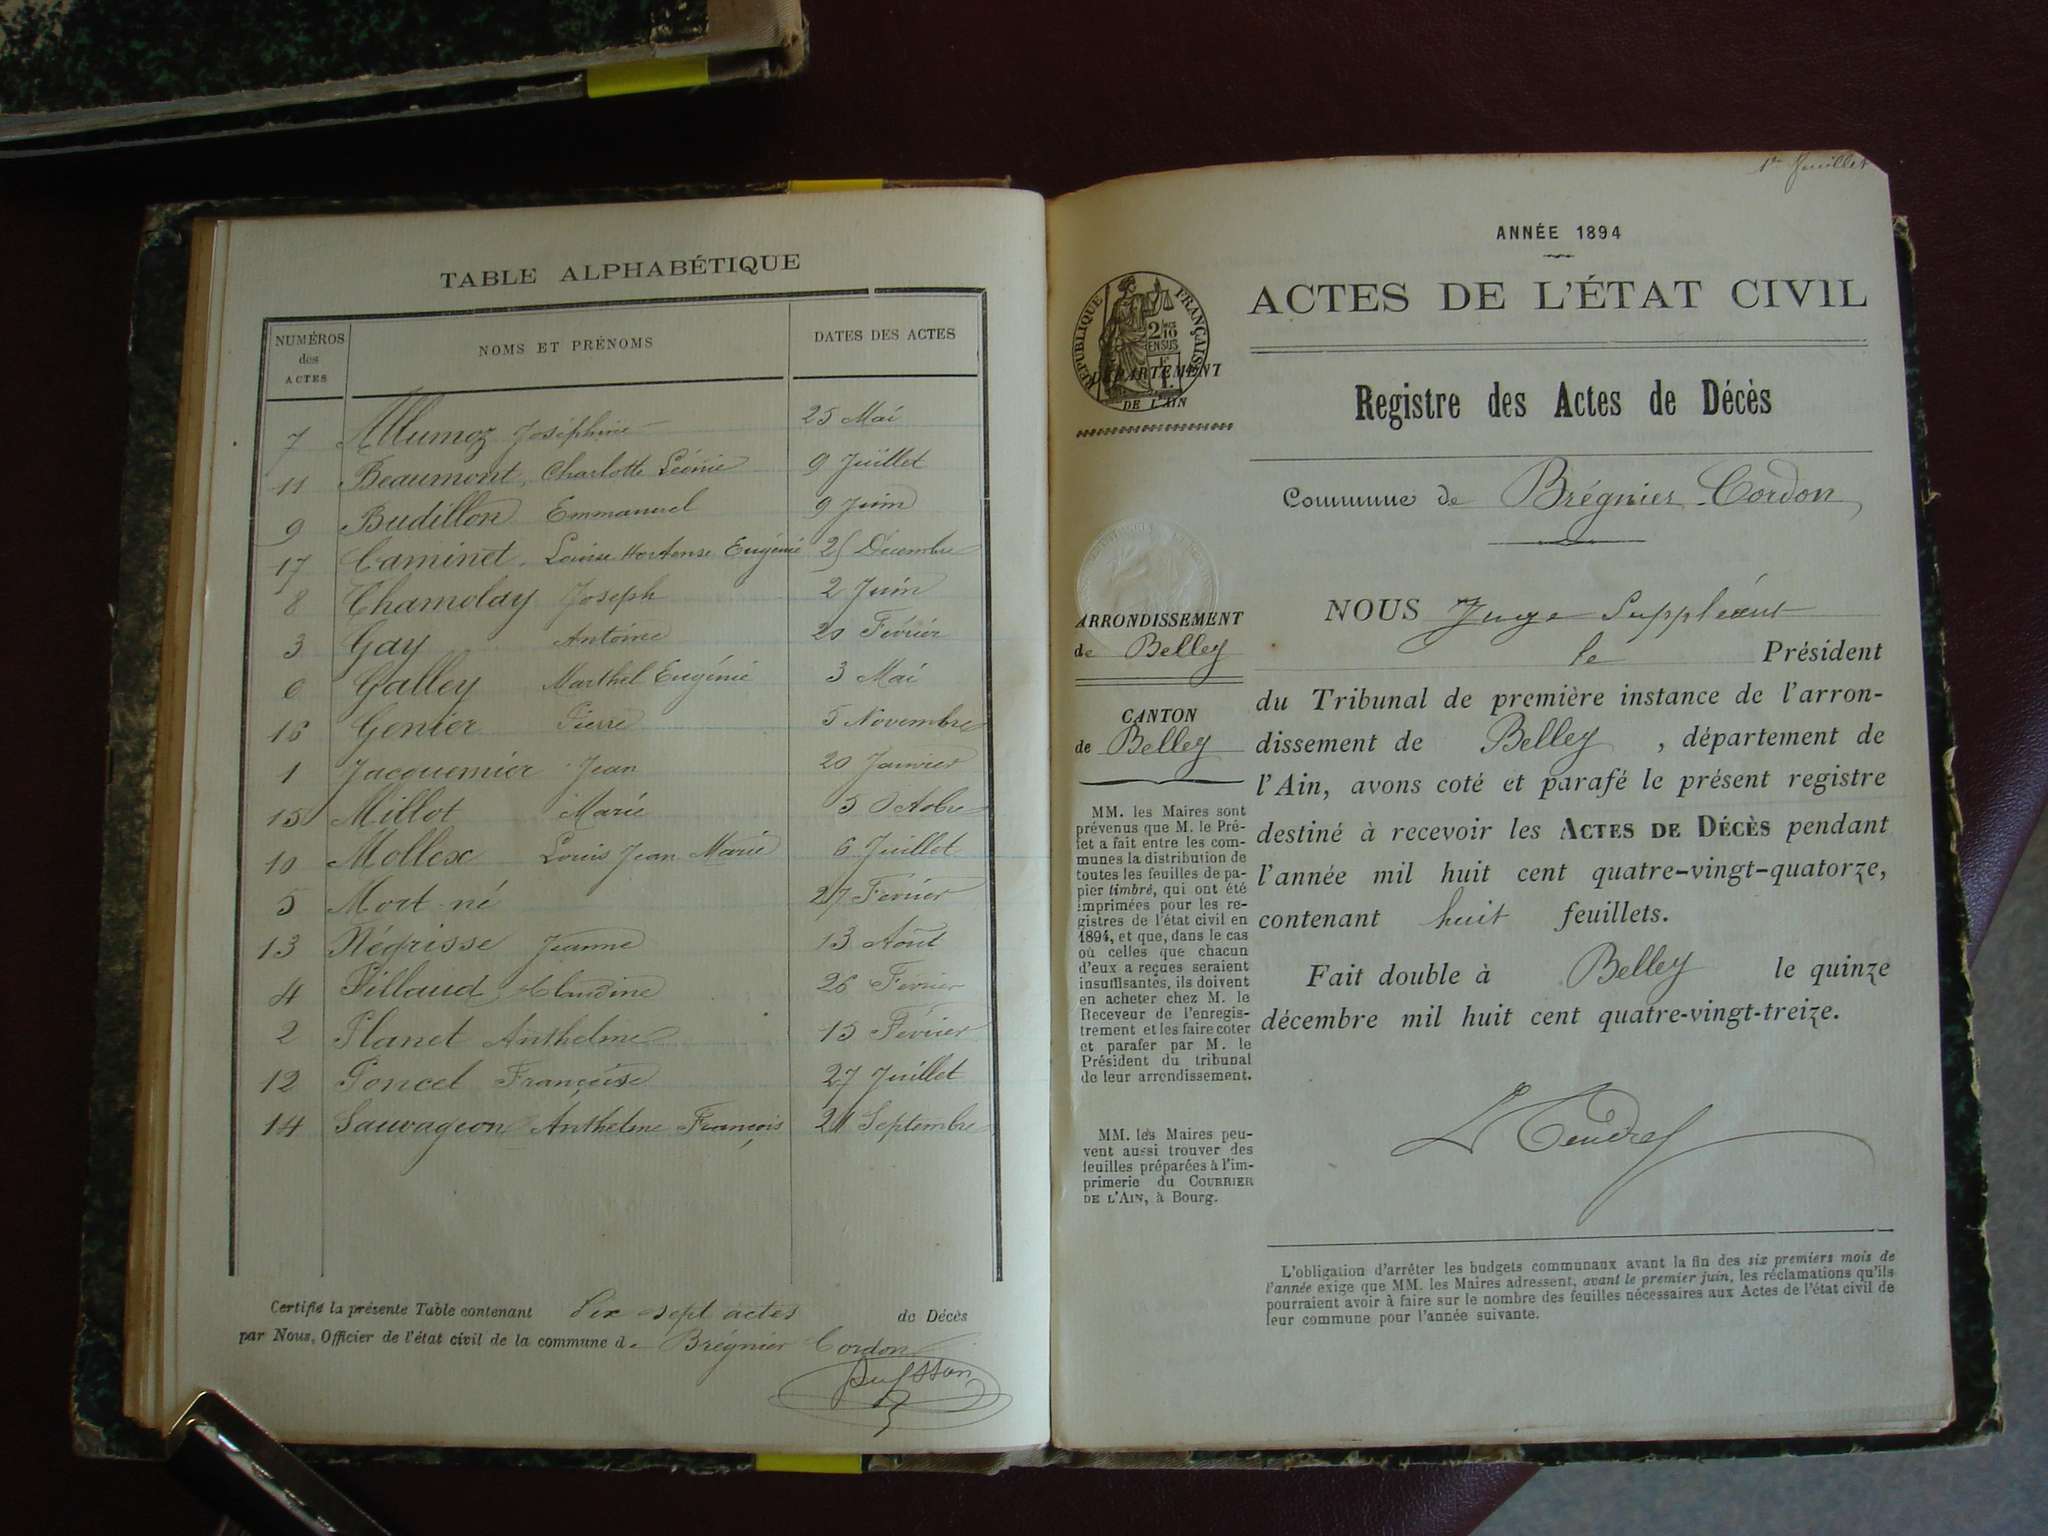 TABLE ALPHABÉTIQUE
NUMÉROS des ACTES NOMS ET PRÉNOMS DATES DES ACTES
7 Allumoz Joséphine 25 Mai
11 Beaumont, Charlotte Léonie 9 Juillet
9 Budillon Emmanuel 9 Juin
17 Caminet, Louise Hortense Eugénie 25 Décembre
8 Chamolay Joseph 2 Juin
3 Gay Antoine Février
6 Galley Marthel Eugénie 3 Mai
16 Genter Pierre 5 Novembre
1 Jacquemier Jean 20 Janvier
15 Millot Marie 5 Octobre
10 Mollex Louis Jean Marie 6 Juillet
5 Mort-né 27 Février
13 Négrisse Jeanne 13 Août
4 Pillaud Claudine 26 Février
2 Planet Anthelme 15 Février
12 Poncet Françoise 27 Juillet
14 Sauvageon Anthelme François 21 Septembre
Certifié la présente Table contenant Dix-sept actes de Décès
par Nous, Officier de l'état civil de la commune de Brégnier Cordon
1er feuillet
ANNÉE 1894
ACTES DE L'ÉTAT CIVIL
RÉPUBLIQUE FRANÇAISE
2/10 EN SUS
DÉPARTEMENT
DE L'AIN
Registre des Actes de Décès
Commune de Brégnier-Cordon
ARRONDISSEMENT
de Belley
CANTON
de Belley
MM. les Maires sont
prévenus que M. le Pré-
fet a fait entre les com-
munes la distribution de
toutes les feuilles de pa-
pier timbré, qui ont été
imprimées pour les re-
gistres de l'état civil en
1894, et que, dans le cas
où celles que chacun
d'eux a reçues seraient
insuffisantes, ils doivent
en acheter chez M. le
Receveur de l'enregis-
trement et les faire coter
et parafer par M. le
Président du tribunal
de leur arrondissement.
MM. les Maires peu-
vent aussi trouver des
feuilles préparées à l'im-
primerie du COURRIER
DE L'AIN, à Bourg.
NOUS Juge Suppléant
le Président
du Tribunal de première instance de l'arron-
dissement de Belley, département de
l'Ain, avons coté et parafé le présent registre
destiné à recevoir les ACTES DE DÉCÈS pendant
l'année mil huit cent quatre-vingt-quatorze,
contenant huit feuillets.
Fait double à Belley le quinze
décembre mil huit cent quatre-vingt-treize.
L'obligation d'arrêter les budgets communaux avant la fin des six premiers mois de
l'année exige que MM. les Maires adressent, avant le premier juin, les réclamations qu'ils
pourraient avoir à faire sur le nombre des feuilles nécessaires aux Actes de l'état civil de
leur commune pour l'année suivante.